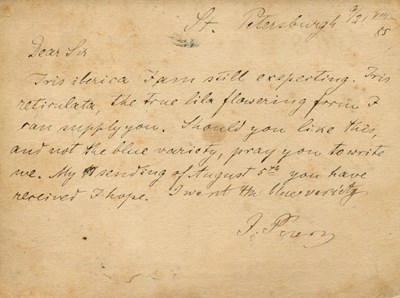 St. Petersburgh
85
Dear Sir
Iris iberica I am still exspecting. Iris
reticulata, the true lila flowering form I
can supply you. Should you like this,
and not the blue variety, pray you to write
me. My sending of August 5th you have
received I hope. I want the